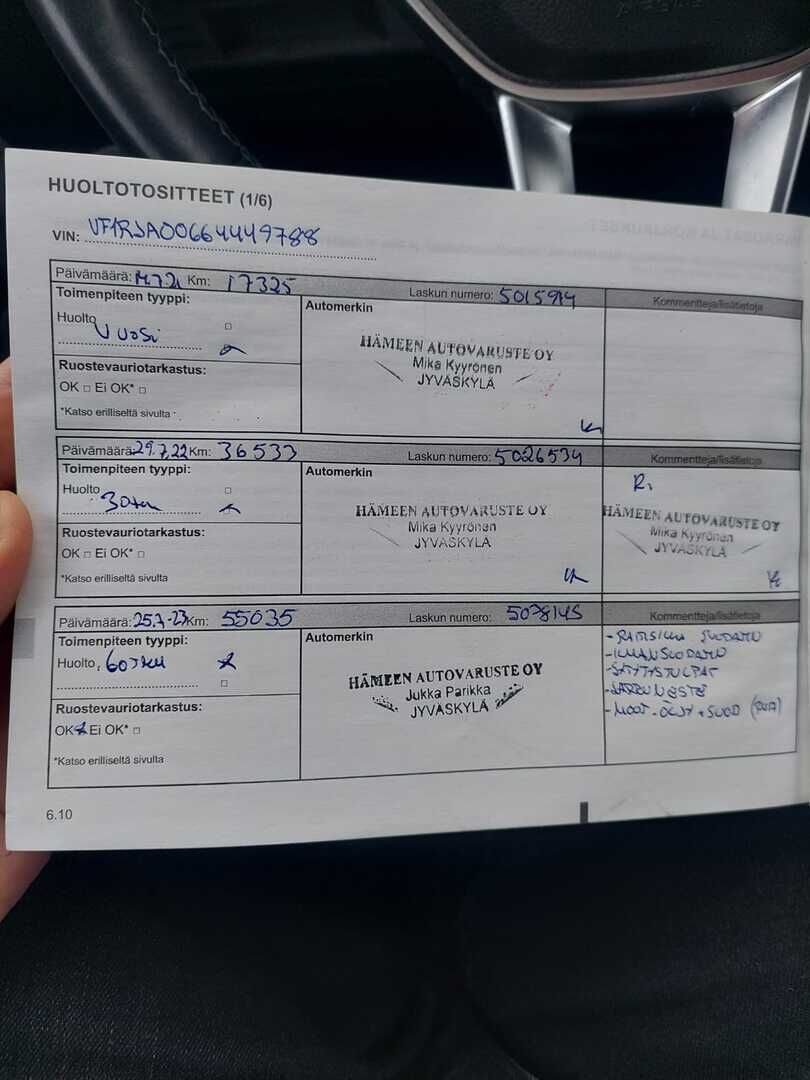 HUOLTOTOSITTEET (1/6)
VIN: VF1RJA00664449788
Päivämäärä: 14.7.21 Km: 17325 Laskun numero: 5015914 Kommentteja/lisätietoja
Toimenpiteen tyyppi: Automerkin
Huolto Vuosi
HÄMEEN AUTOVARUSTE OY
Mika Kyyrönen
JYVÄSKYLÄ
Ruostevauriotarkastus:
OK □ Ei OK* □
*Katso erilliseltä sivulta
Päivämäärä: 29.7.22 Km: 36533 Laskun numero: 5026534 Kommentteja/lisätietoja
Toimenpiteen tyyppi: Automerkin
Huolto 30tkm
HÄMEEN AUTOVARUSTE OY
Mika Kyyrönen
JYVÄSKYLÄ
HÄMEEN AUTOVARUSTE OY
Mika Kyyrönen
JYVÄSKYLÄ
Ruostevauriotarkastus:
OK □ Ei OK* □
*Katso erilliseltä sivulta
Päivämäärä: 25.7.23 Km: 55035 Laskun numero: 5078145 Kommentteja/lisätietoja
Toimenpiteen tyyppi: Automerkin
Huolto, 60TKM
HÄMEEN AUTOVARUSTE OY
Jukka Parikka
JYVÄSKYLÄ
- RAITISILMA SUODATIN
- ILMANSUODATIN
- SYTYTYSTULPAT
- JARRUNESTE
- MOOT-ÖLJY + SUOD
Ruostevauriotarkastus:
OK Ei OK* □
*Katso erilliseltä sivulta
6.10